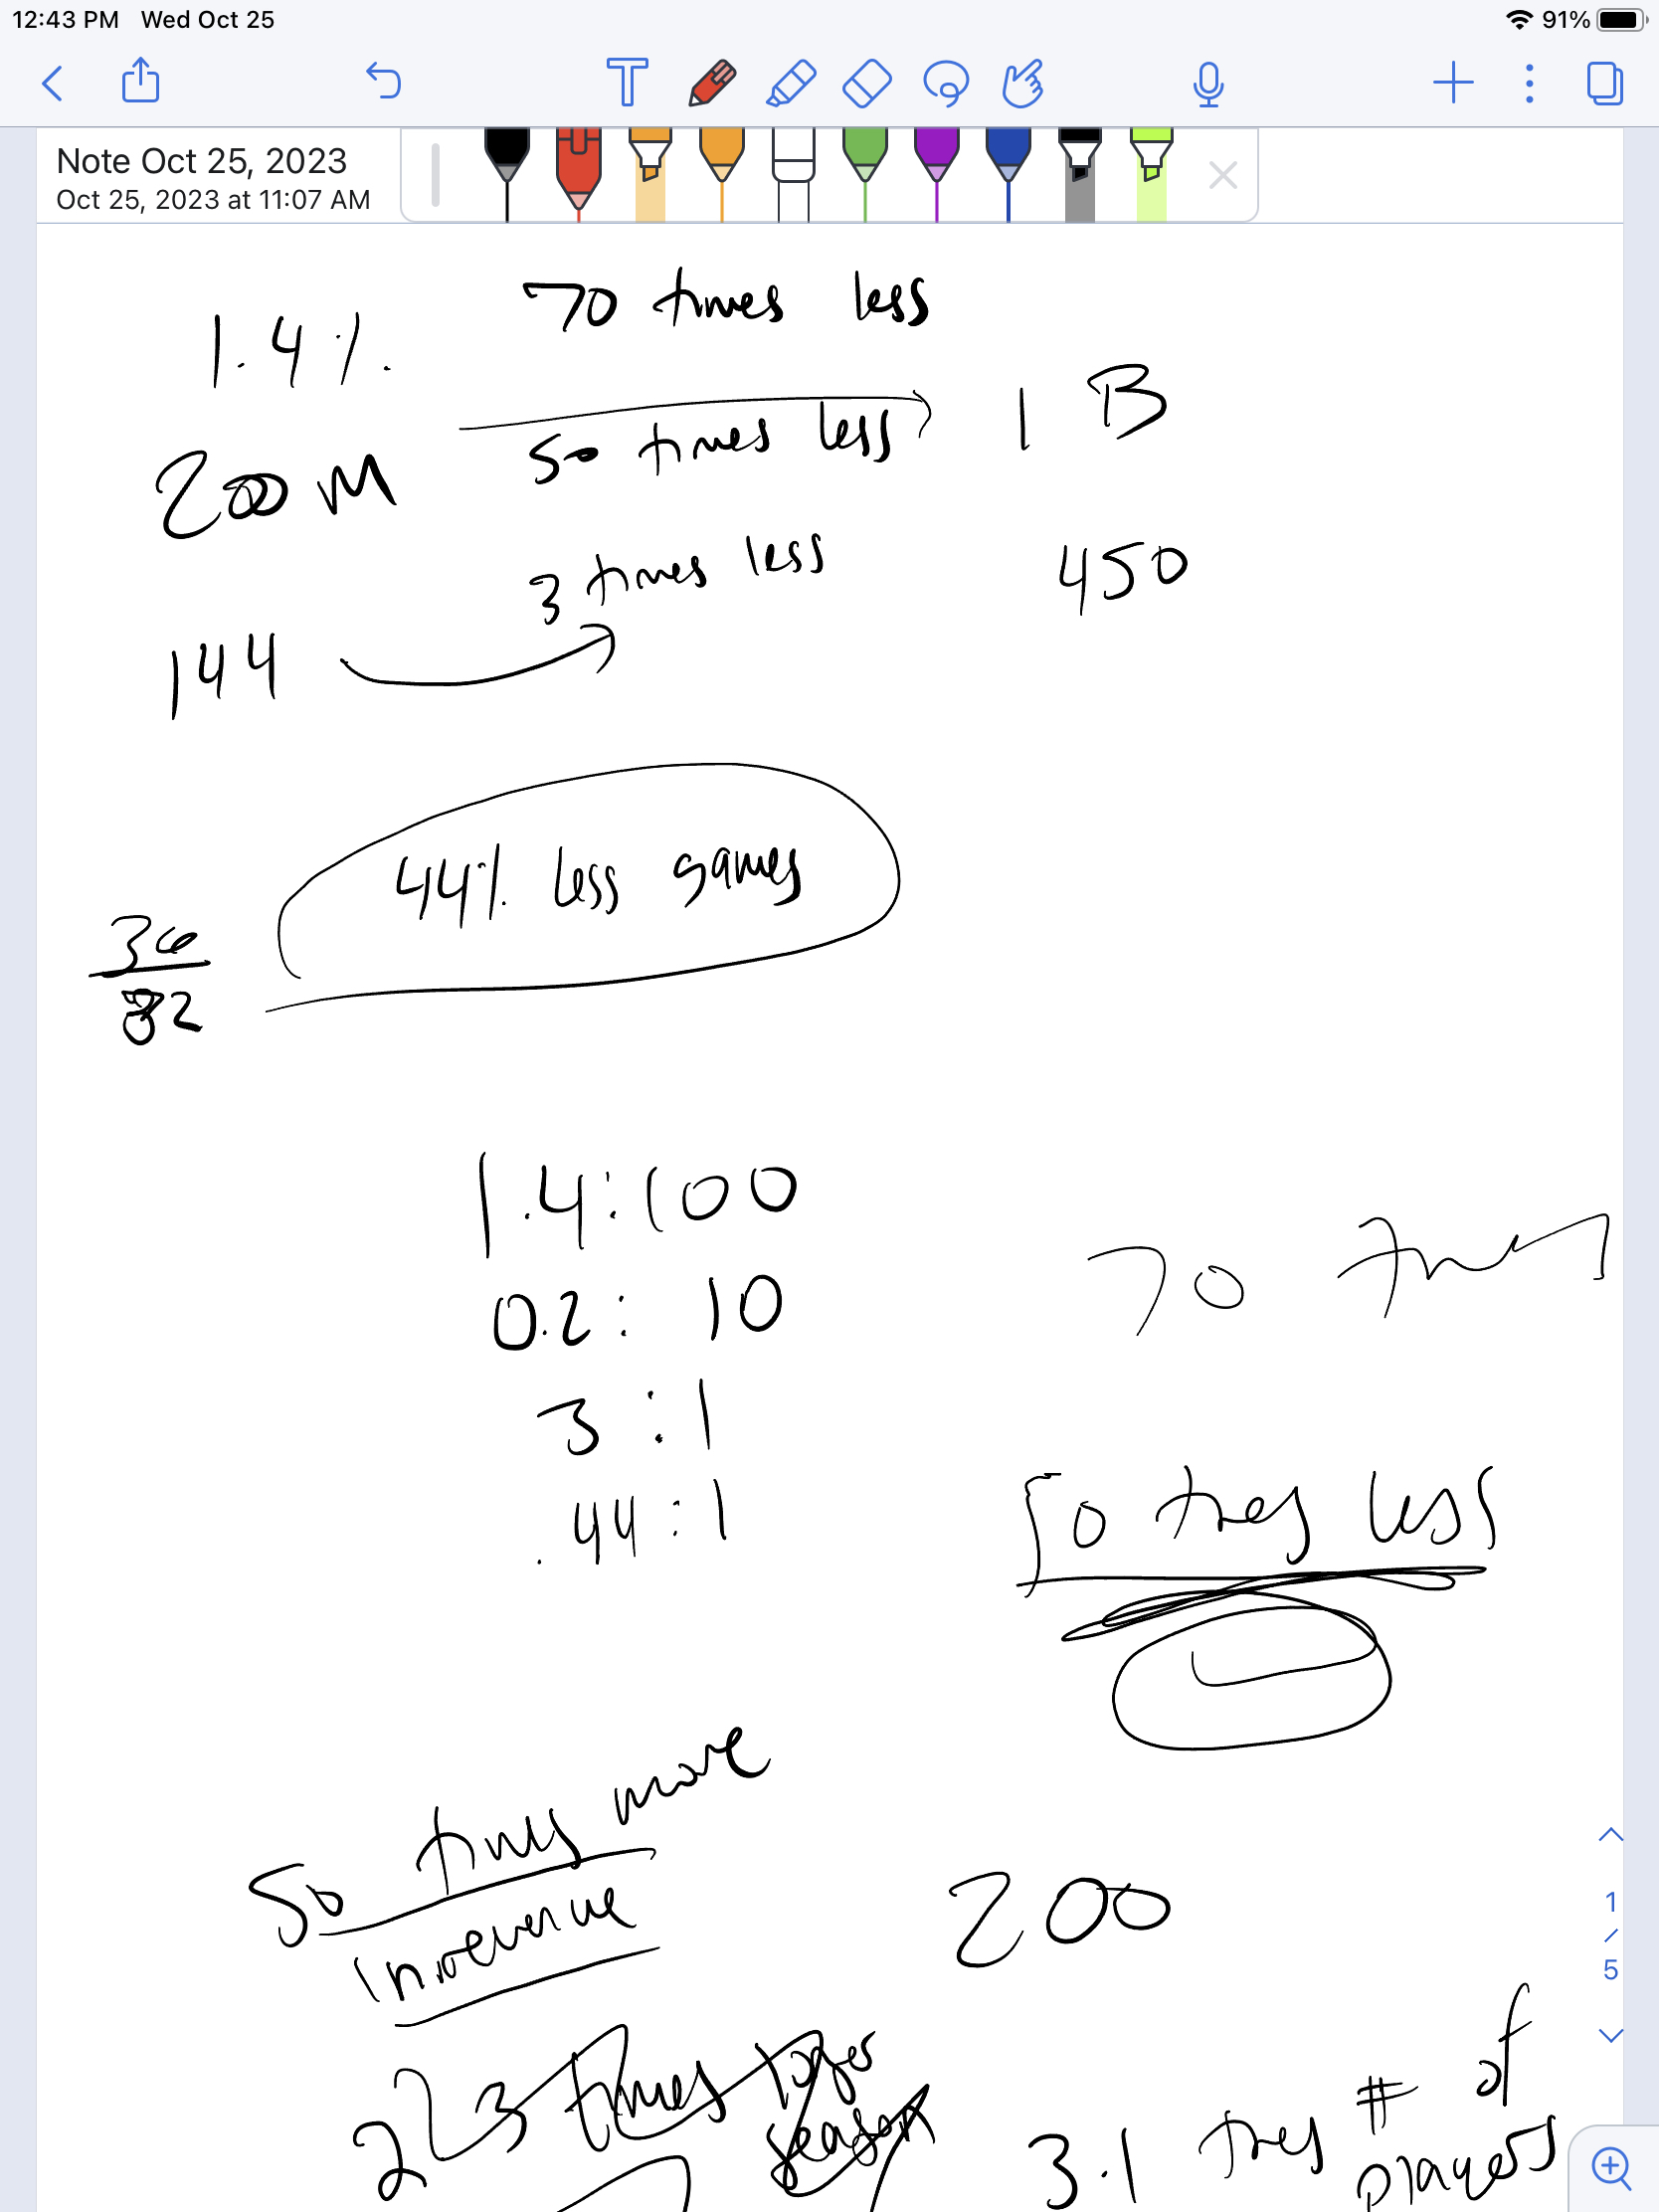 12:43 PM Wed Oct 25
91%
Note Oct 25, 2023
Oct 25, 2023 at 11:07 AM
70 times less
1.4%
50 times less
1 B
200 M
3 times less
450
144
44% less games
36
82
1.4:100
0.2: 10
70 times
3 : 1
.44 : 1
50 times less
50 times more
in revenue
200
1
/
5
2 2.3 times longer
season
3.1 times # of
players